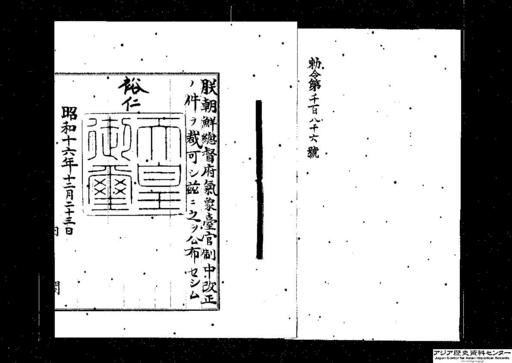 勅令第千百八十六號
朕朝鮮總督府氣象臺官制中改正
ノ件ヲ裁可シ茲ニ之ヲ公布セシム
裕仁
天皇御璽
昭和十六年十二月二十三日
内閣
アジア歴史資料センター
Japan Center for Asian Historical Records